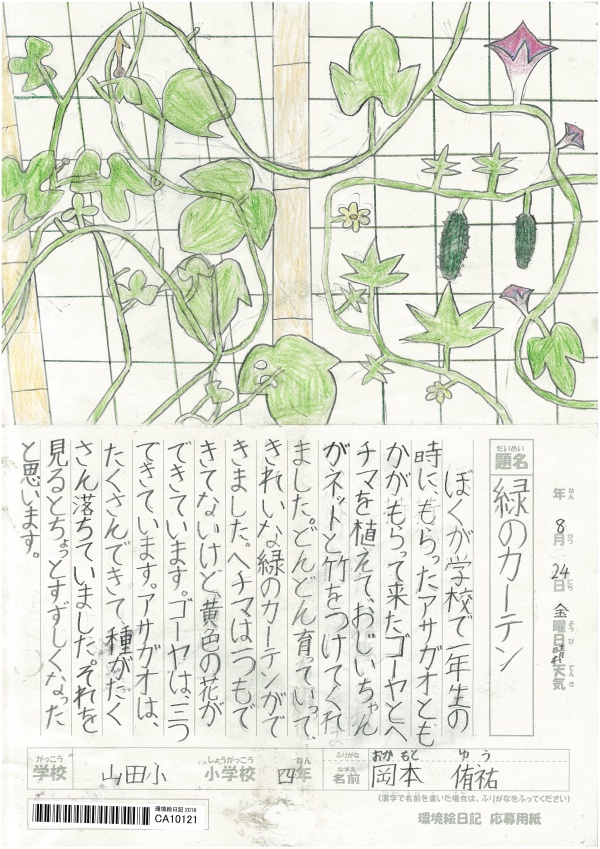 年 8月 24日 金曜日 晴れ 天気
ねん がつ にち よう び てん き
だいめい
題名
緑のカーテン
ぼくが学校で一年生の
時に、もらったアサガオとも
かがもらって来たゴーヤとへ
チマを植えて、おじいちゃん
がネットと竹をつけてくれ
ました。どんどん育っていって、
きれいな緑のカーテンがで
きました。ヘチマは一つもで
きてないけど、黄色の花が
できています。ゴーヤは、三つ
できています。アサガオは、
たくさんできて、種がたく
さん落ちていました。それを
見るとちょっとすずしくなった
と思います。
がっこう しょうがっこう ねん
学校 山田小 小学校 四年
ふりがな おか もと ゆう
なまえ
名前 岡本 侑祐
(漢字で名前を書いた場合は、ふりがなをふってください)
環境絵日記 2018
CA10121
環境絵日記 応募用紙